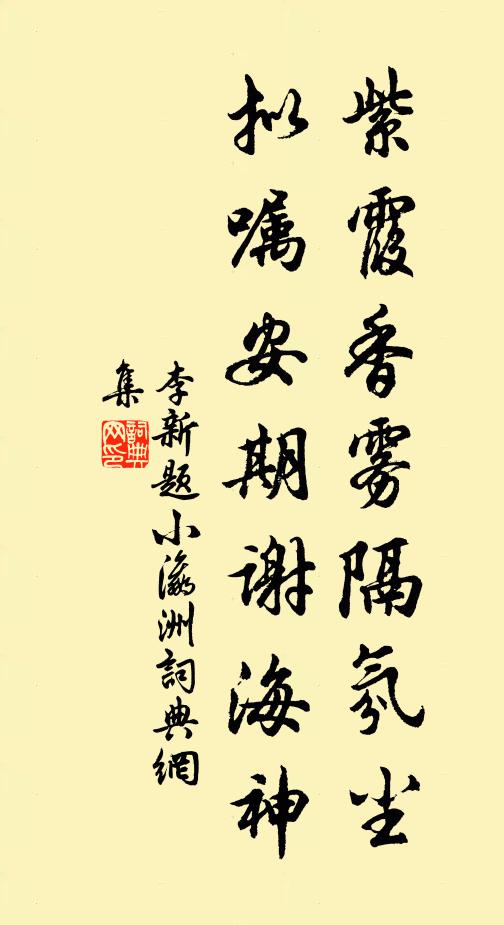 紫霞香雾隔氛尘
拟嘱安期谢海神
李新题小瀛洲詞典網
集
詞典
网印